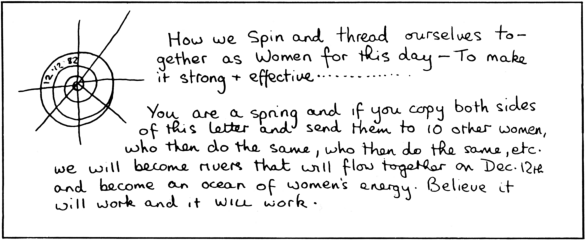 12 12 82
How we Spin and thread ourselves to-
gether as Women for this day – To make
it strong + effective..............
You are a spring and if you copy both sides
of this letter and send them to 10 other women,
who then do the same, who then do the same, etc.
we will become rivers that will flow together on Dec. 12th
and become an ocean of women's energy. Believe it
will work and it will work.